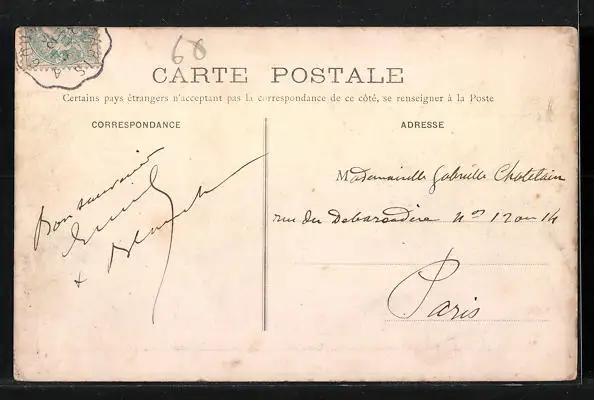 60
CARTE POSTALE
Certains pays étrangers n'acceptant pas la correspondance de ce côté, se renseigner à la Poste
CORRESPONDANCE
ADRESSE
Bon souvenir
Emile
+ Blanche
Mademoiselle Gabrielle Chatelain
rue du Debarcadère nos 12 ou 14
Paris